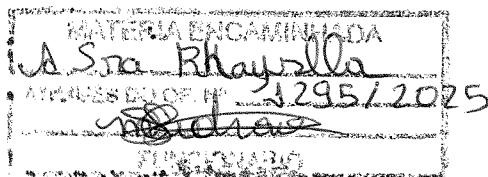 MATÉRIA ENCAMINHADA
A Sra Rhayslla
ATRAVÉS DO OF. Nº 1295/2025
FUNCIONÁRIO